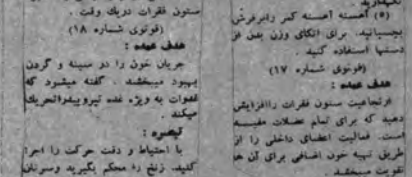 (۵) آهسته آهسته کمر رابرفرش
بچسبانید. برای اتکای وزن بدن از
دستها استفاده کنید.
(فوتوی شماره ۱۷)
هدف عمده :
ارتجاعیت ستون فقرات راافزایش
دهید که برای تمام عضلات مفید
است. فعالیت اعضای داخلی را از
طریق تهیه خون اضافی برای آن ها
تقویت میبخشد.
ستون فقرات دریک وقت.
(فوتوی شماره ۱۸)
هدف عمده :
جریان خون را در سینه و گردن
بهبود میبخشد. گفته میشود که
به ویژه غده تیروییدراتحریک
میکند
تبصره :
با احتیاط و دقت حرکت را اجرا
کنید. زنخ را محکم بگیرید وسرتان